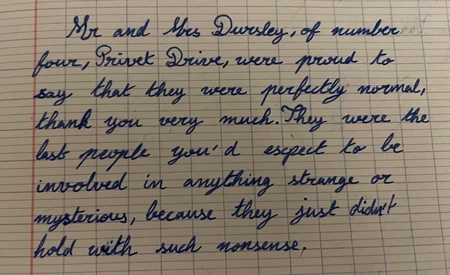 Mr and Mrs Dursley, of number
four, Privet Drive, were proud to
say that they were perfectly normal,
thank you very much. They were the
last people you'd expect to be
involved in anything strange or
mysterious, because they just didn't
hold with such nonsense.